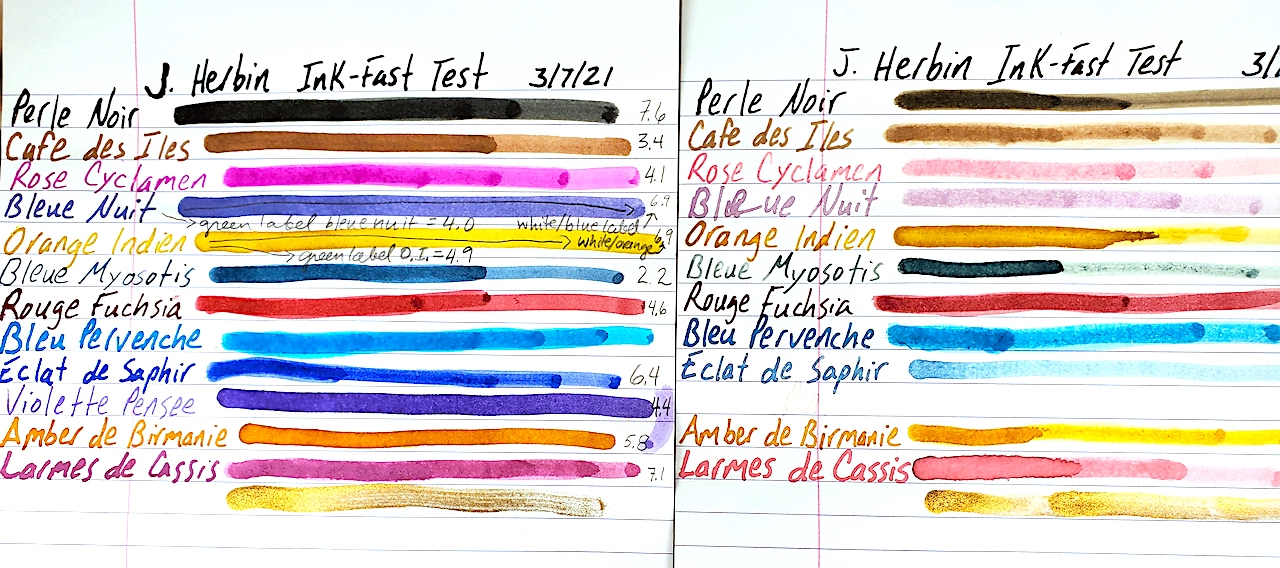 J. Herbin Ink-Fast Test 3/7/21
Perle Noir 7.6
Cafe des Iles 3.4
Rose Cyclamen 4.1
Bleue Nuit 6.9
green label bleue nuit = 4.0 white/blue label
Orange Indien white/orange
green label O.I. = 4.9
Bleue Myosotis 2.2
Rouge Fuchsia 4.6
Bleu Pervenche
Éclat de Saphir 6.4
Violette Pensee 4.4
Amber de Birmanie 5.8
Larmes de Cassis 7.1
J. Herbin Ink-Fast Test 3/
Perle Noir
Cafe des Iles
Rose Cyclamen
Bleue Nuit
Orange Indien
Bleue Myosotis
Rouge Fuchsia
Bleu Pervenche
Éclat de Saphir
Amber de Birmanie
Larmes de Cassis